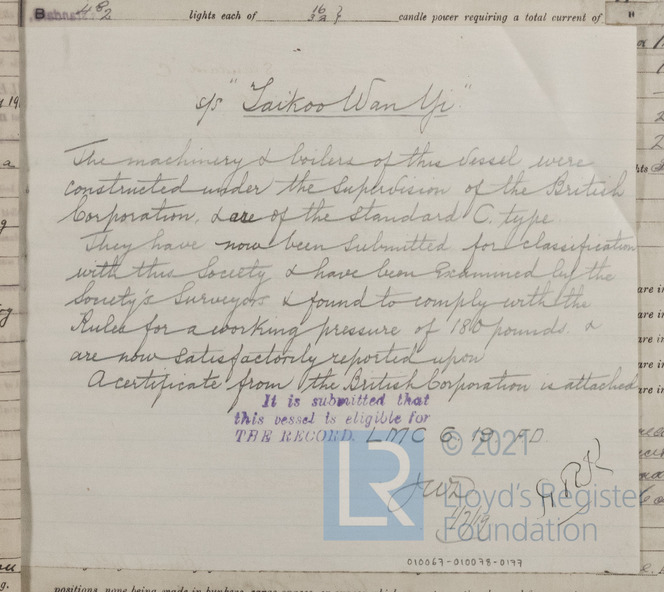 482
lights each of 16 } 32 } candle power requiring a total current of "
s/s "Taikoo Wan Yi"
The machinery & boilers of this vessel were
constructed under the Supervision of the British
Corporation, & are of the Standard C. type
They have now been Submitted for classification
with this Society & have been Examined by the
Society's Surveyors & found to comply with the
Rules for a working pressure of 180 pounds. &
are now Satisfactorily reported upon
A certificate from the British Corporation is attached
It is submitted that
this vessel is eligible for
THE RECORD. LMC 6.19. FD.
© 2021
LR
Lloyd's Register
Foundation
010067-010078-0177